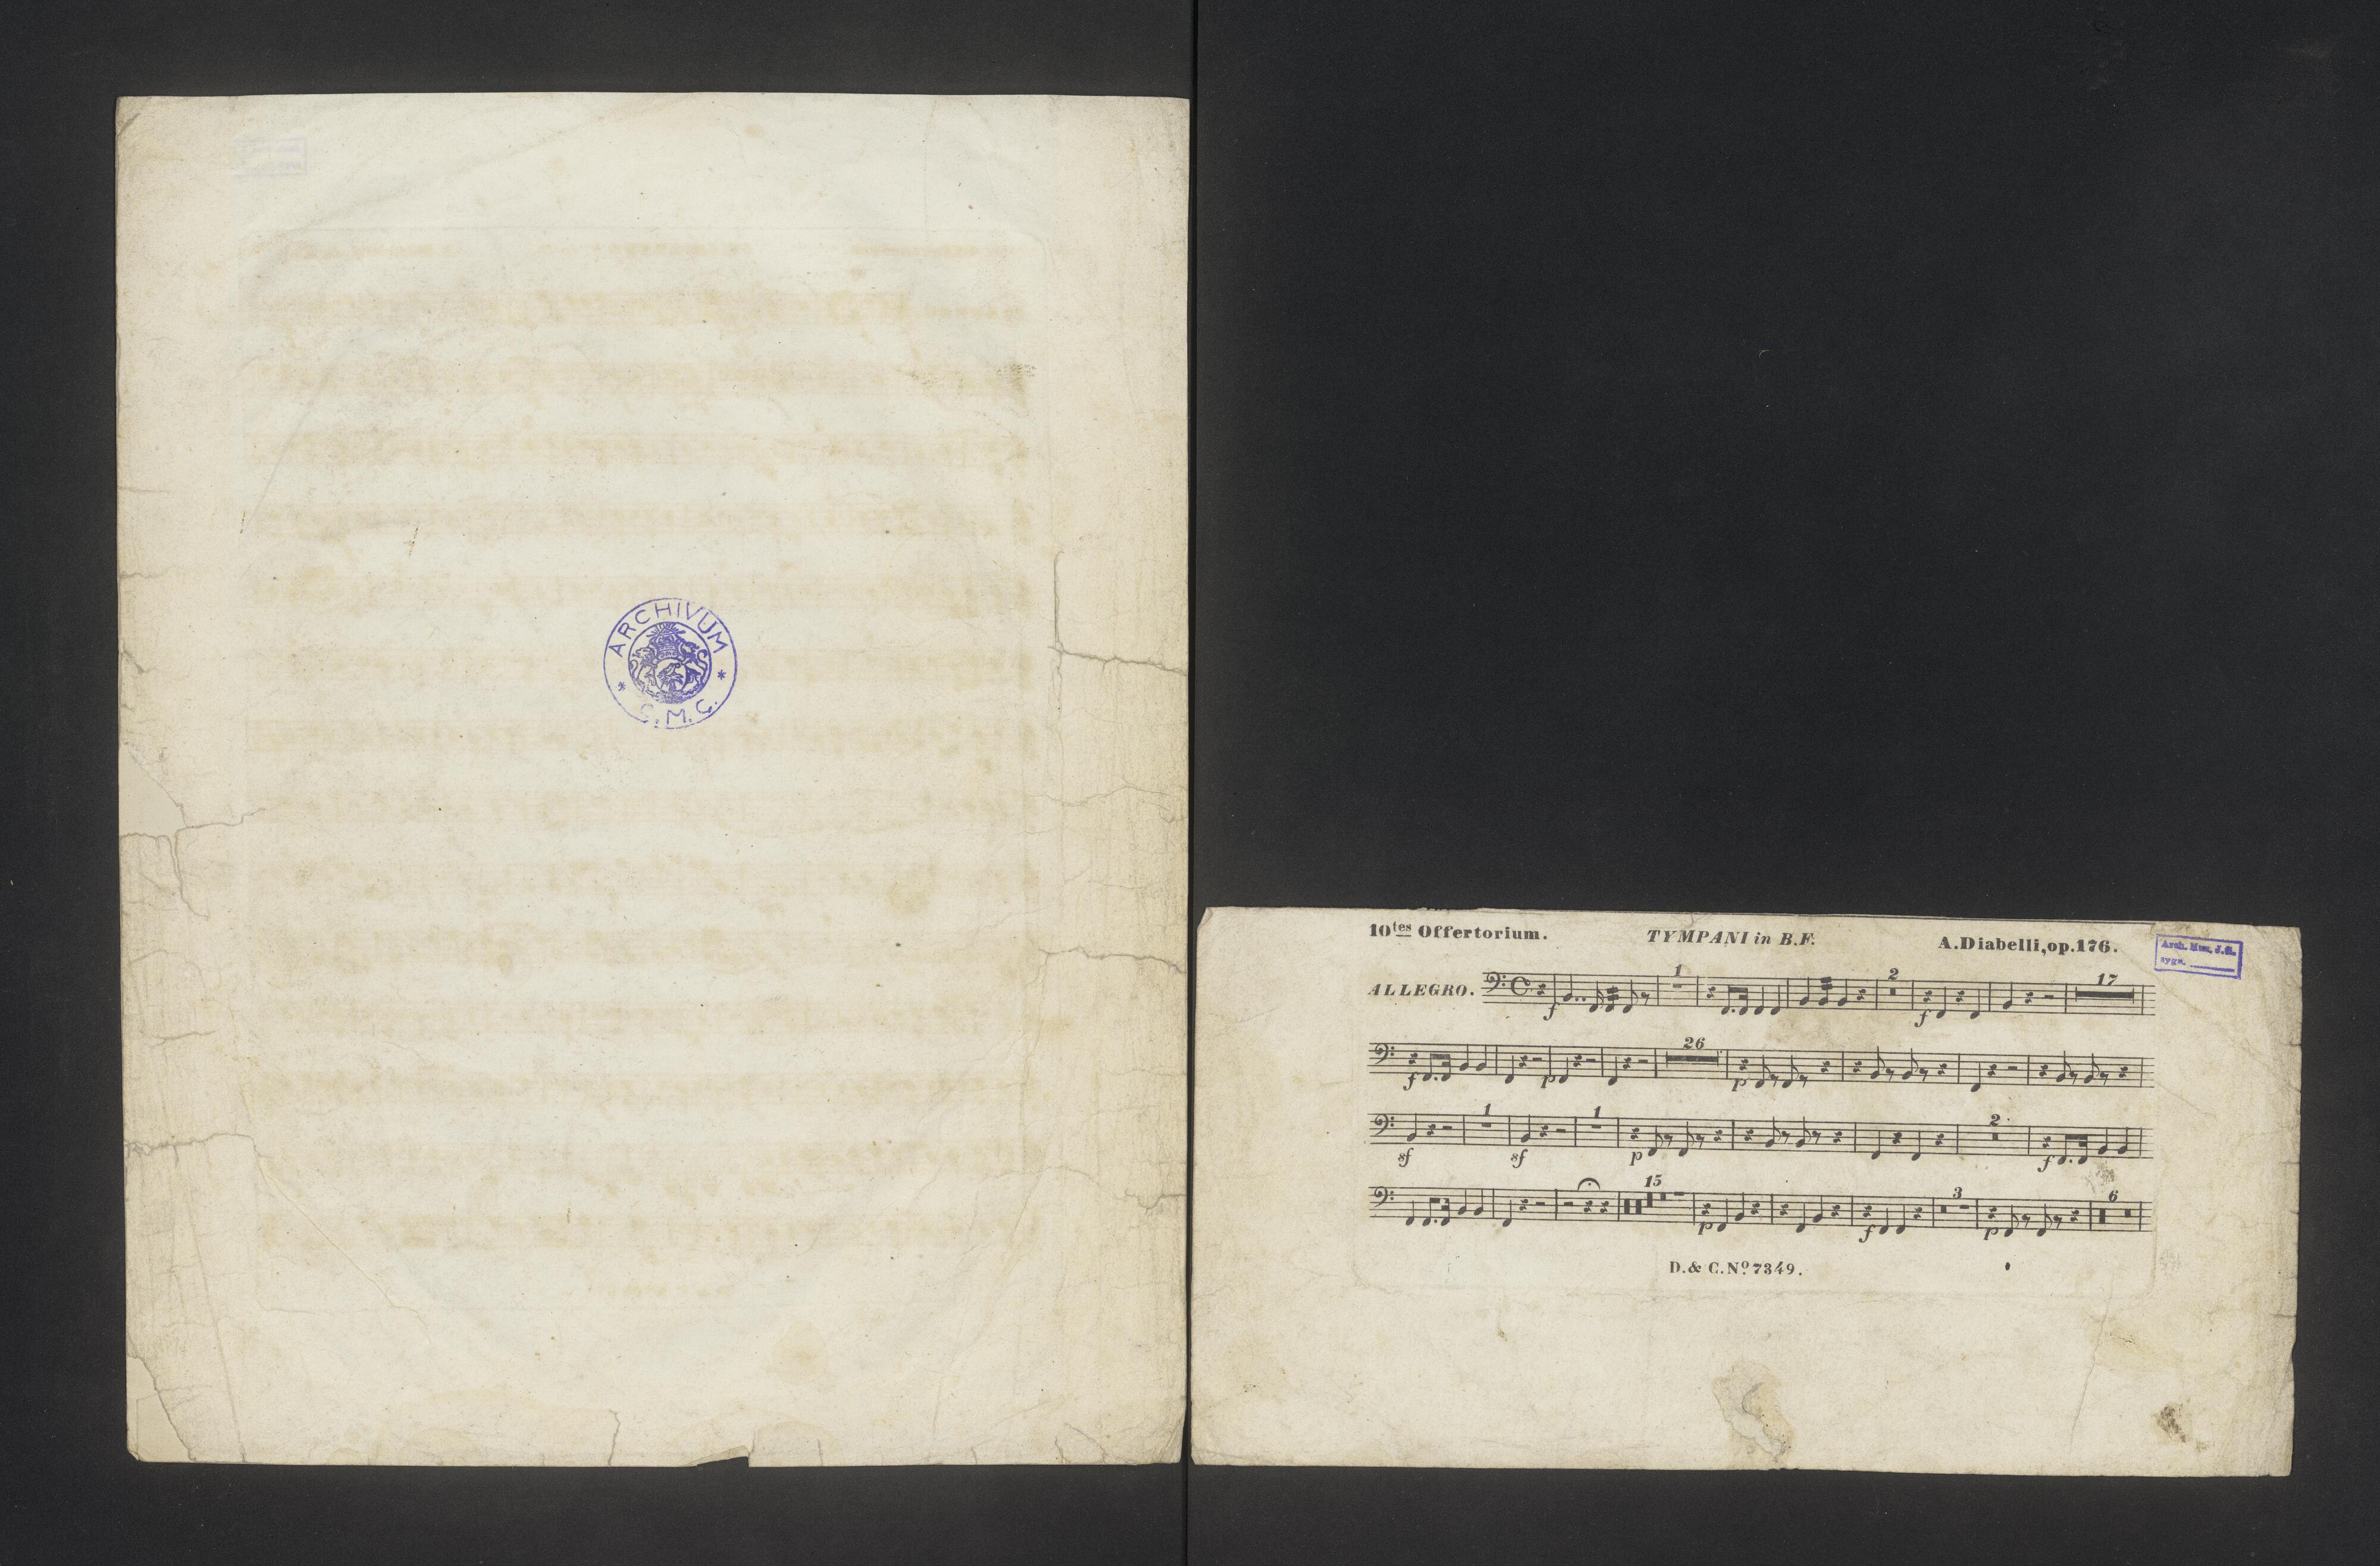 ARCHIVUM
* C.M.C. *
10tes Offertorium. TYMPANI in B.F. A.Diabelli,op.176.
Arch. Mus. J.G.
sygn.
ALLEGRO. f 1 2 f 17
f p 26 p
sf 1 sf 1 p 2 f
15 p f 3 p 6
D.& C.No 7349.